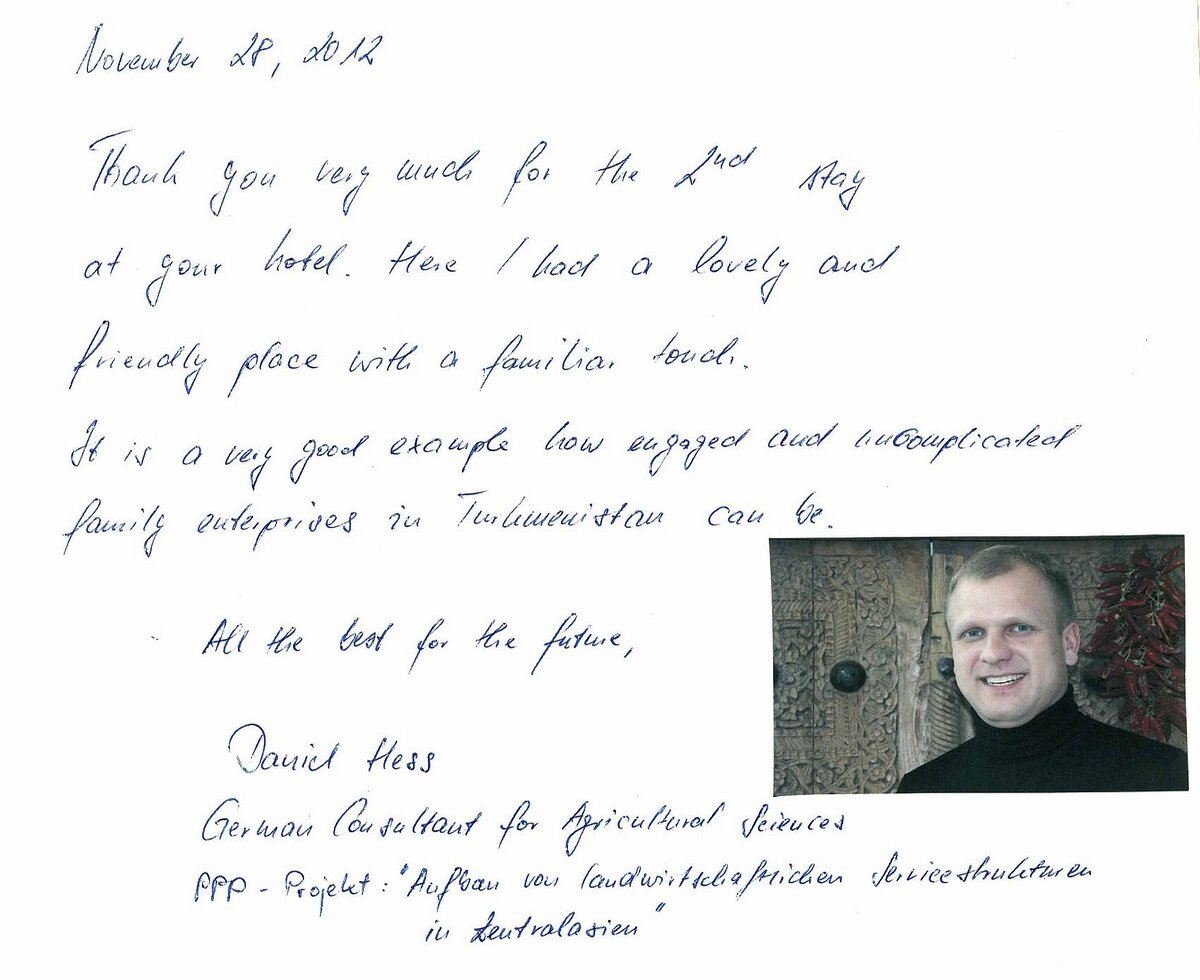 November 28, 2012
Thank you very much for the 2nd stay
at your hotel. Here I had a lovely and
friendly place with a familiar touch.
It is a very good example how engaged and uncomplicated
family enterprises in Turkmenistan can be.
All the best for the future,
Daniel Hess
German Consultant for Agricultural Sciences
PPP - Projekt: "Aufbau von landwirtschaftlichen Servicestrukturen
in Zentralasien"